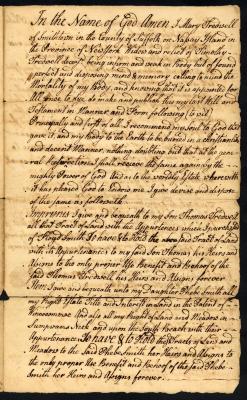 In the Name of God Amen I Mary Tredwell
of Smithtown in the County of Suffolk on Nassau Island in
the Province of New York Widow and relict of Timothy
Tredwell decsd. being infirm and weak in Body but of sound
perfect and disposing mind & memory calling to mind the
Mortality of my Body, and knowing that it is appointed for
All once to Dye do make and publish this my Last Will and
Testament in Manner and Form following (to vit)
Principally and first of all I recommend my Soul to God that
gave it, and my Body to the Earth to be buried in a Christianlike
and decent Manner, nothing doubting but that at the Gene
ral Resurrection I shall receive the same again by the
mighty Power of God And as to the worldly Estate wherewith
it has pleased God to Endow me I give devise and dispose
of the same as followeth.
Imprimis I give and bequeath to my Son Thomas Tredwell
all that Tract of Land with the Appurtenances which I purchased
of Floyd Smith To have & to Hold the said Tract of Land
with its Appurtenances to my said Son Thomas his Heirs and
Assigns to the only proper Use Benefit and Behoof of the
said Thomas Tredwell his Heirs and Assigns forever
Item I give and bequeath unto my Daughter Phebe Smith all
my Right Title and Interest in Land in the Patent of
and also all my Right of Land and Meadow in
Sumpwams Neck and upon the South Beach with their
Appurtenances To have & to Hold the Tracts of Land and
Meadow to the said Phebe Smith her Heirs and Assigns to
the only proper Use Benefit and Behoof of the said Phebe
Smith her Heirs and Assigns forever.